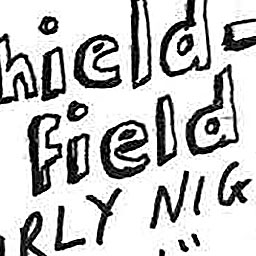 hield-
field
RLY NIG